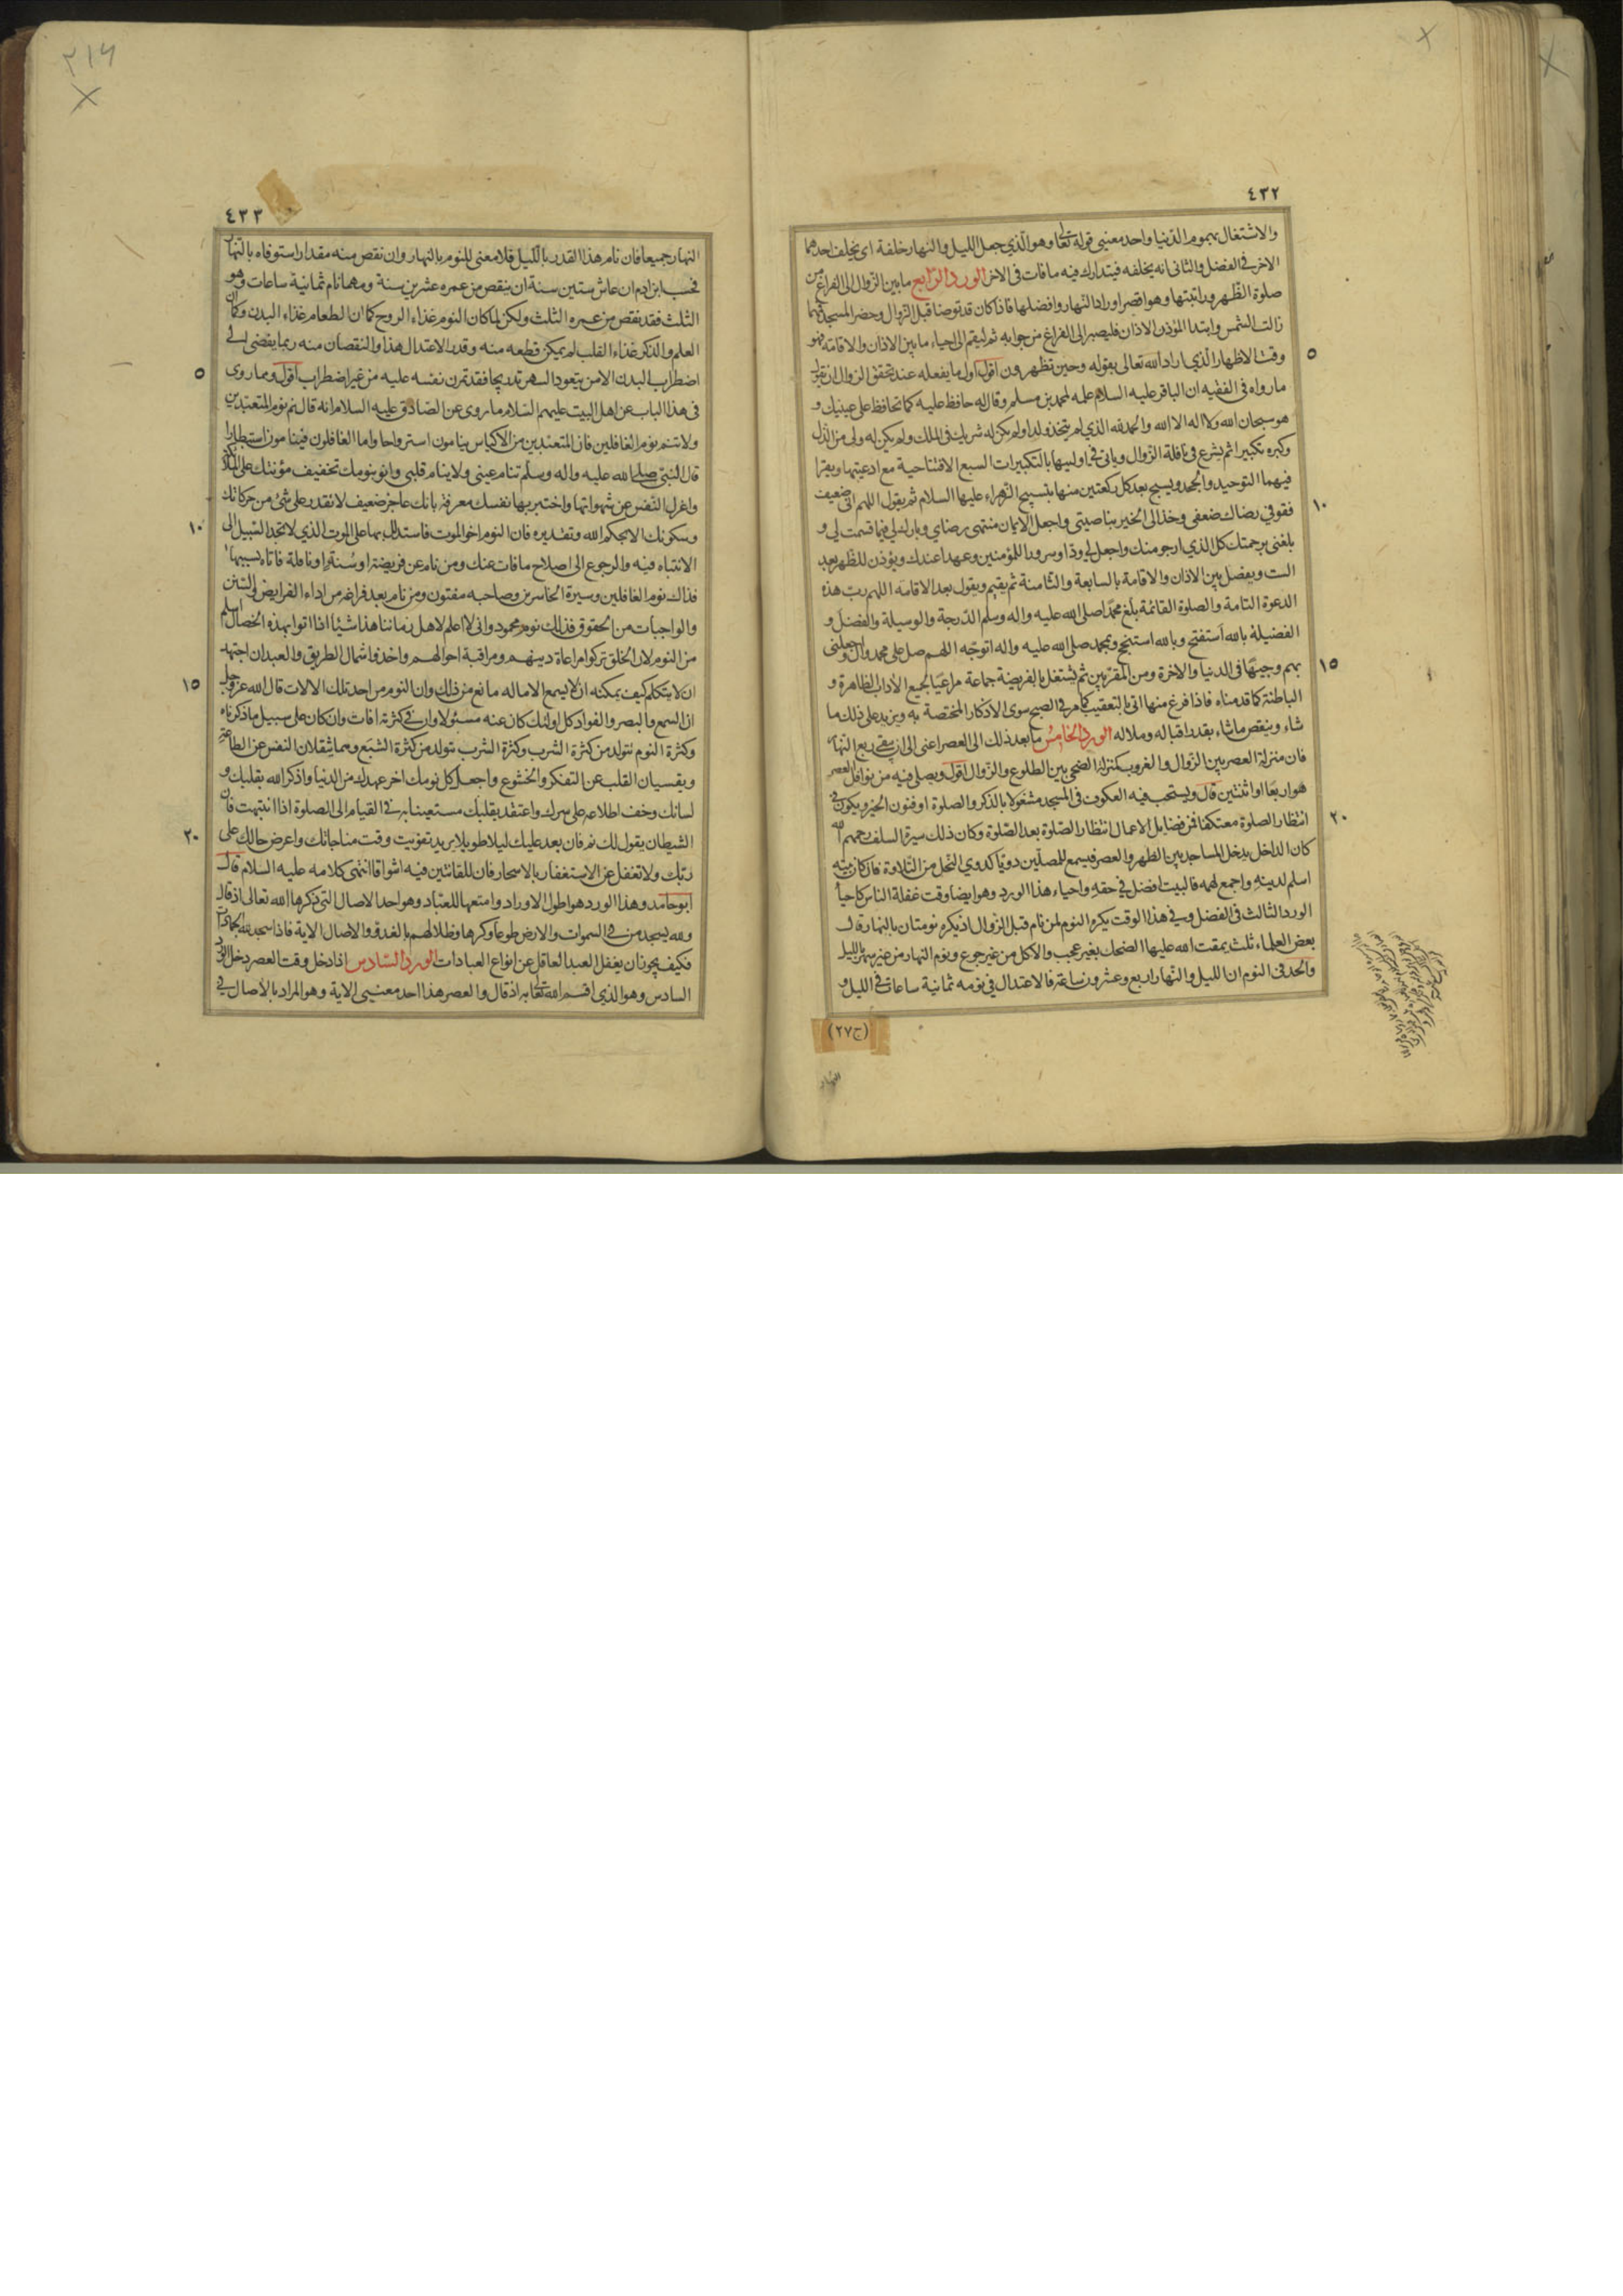 ٤٣٢
والاشتغال بهموم الدنيا واحد معنيي قوله تعالى وهو الذي جعل الليل والنهار خلفة اي يخلف احدهما
الاخر في الفضل والثاني انه يخلفه فيتدارك فيه ما فات في الاخر الورد الرابع ما بين الزوال الى الفراغ من
صلوة الظهر وراتبتها وهو اقصر اوراد النهار وافضلها فاذا كان قد توضا قبل الزوال وحضر المسجد فمهما
زالت الشمس وابتدا المؤذن الاذان فليصبر الى الفراغ من جوابه ثم ليقم الى احياء ما بين الاذان والاقامة فهو
٥
وقت الاظهار الذي اراد الله تعالى بقوله وحين تظهرون اقول اول ما يفعله عند تحقق الزوال ان يقول
ما رواه في الفقيه ان الباقر عليه السلام علمه لمحمد بن مسلم وقال له حافظ عليه كما تحافظ على عينيك و
هو سبحان الله ولا اله الا الله والحمد لله الذي لم يتخذ ولدا ولم يكن له شريك في الملك ولم يكن له ولي من الذل
وكبره تكبيرا ثم يشرع في نافلة الزوال وياتي في اوليها بالتكبيرات السبع الافتتاحية مع ادعيتها ويقرا
فيهما التوحيد والجحد ويسبح بعد كل ركعتين منها بتسبيح الزهراء عليها السلام ثم يقول اللهم اني ضعيف
١٠
فقو في رضاك ضعفي وخذ الى الخير بناصيتي واجعل الايمان منتهى رضاي وبارك لي فيما قسمت لي و
بلغني برحمتك كل الذي ارجو منك واجعل لي ودا وسرورا للمؤمنين وعهدا عندك ويؤذن للظهر بعد
الست ويفصل بين الاذان والاقامة بالسابعة والثامنة ثم يقيم ويقول بعد الاقامة اللهم رب هذه
الدعوة التامة والصلوة القائمة بلغ محمدا صلى الله عليه واله وسلم الدرجة والوسيلة والفضل و
الفضيلة بالله استفتح وبالله استنجح وبمحمد صلى الله عليه واله اتوجه اللهم صل على محمد وال واجعلني
١٥
بهم وجيها في الدنيا والاخرة ومن المقربين ثم يشتغل بالفريضة جماعة مراعيا لجميع الاداب الظاهرة و
الباطنة كما قدمناه فاذا فرغ منها اتى بالتعقيب كما مر في الصبح سوى الاذكار المختصة به ويزيد على ذلك ما
شاء وينقص ما شاء بقدر اقباله وملاله الورد الخامس ما بعد ذلك الى العصر اعني الى ان يبقى ربع النهار
فان منزلة العصر بين الزوال والغروب كمنزلة الضحى بين الطلوع والزوال اقول ويصلي فيه من نوافل العصر
هو اربعا او اثنتين قال ويستحب فيه العكوف في المسجد مشغولا بالذكر والصلوة او فنون الخير ويكون في
٢٠
انتظار الصلوة معتكفا فمن فضايل الاعمال انتظار الصلوة بعد الصلوة وكان ذلك سيرة السلف رحمهم الله
كان الداخل يدخل المساجد بين الظهر والعصر فيسمع للمصلين دويا كدوي النحل من التلاوة فان كان بيته
اسلم لدينه واجمع لهمه فالبيت افضل في حقه واحياء هذا الورد وهو ايضا وقت غفلة الناس كاحياء
الورد الثالث في الفضل وفي هذا الوقت يكره النوم لمن نام قبل الزوال اذ يكره نومتان بالنهار قال
بعض العلماء ثلث يمقت الله عليها الضحك بغير عجب والاكل من غير جوع ونوم النهار من غير سهر بالليل
والحد في النوم ان الليل والنهار اربع وعشرون ساعة فالاعتدال في نومه ثمانية ساعات في الليل و
(ج٢٧)
النهار
٢١٦
٤٣٣
النهار جميعا فان نام هذا القدر بالليل فلا معنى للنوم بالنهار وان نقص منه مقدارا استوفاه بالنهار
فحسب ابن ادم ان عاش ستين سنة ان ينقص من عمره عشرين سنة ومهما نام ثمانية ساعات وهو
الثلث فقد نقص من عمره الثلث ولكن لما كان النوم غذاء الروح كما ان الطعام غذاء البدن وكما ان
العلم والذكر غذاء القلب لم يمكن قطعه منه وقدر الاعتدال هذا والنقصان منه ربما يفضي الى
٥
اضطراب البدن الا من يتعود السهر تدريجا فقد تمرن نفسه عليه من غير اضطراب اقول ومما روي
في هذا الباب عن اهل البيت عليهم السلام ما روي عن الصادق عليه السلام انه قال نم نوم المتعبدين
ولا تنم نوم الغافلين فان المتعبدين من الاكياس ينامون استرواحا واما الغافلون فينامون استبطارا
قال النبي صلى الله عليه واله وسلم تنام عيني ولا ينام قلبي وانو بنومك تخفيف مؤنتك على الملائكة
واعزل النفس عن شهواتها واختبر بها نفسك معرفة بانك عاجز ضعيف لا تقدر على شئ من حركاتك
١٠
وسكونك الا بحكم الله وتقديره فان النوم اخو الموت فاستدلل بها على الموت الذي لا تجد السبيل الى
الانتباه فيه والرجوع الى اصلاح ما فات عنك ومن نام عن فريضة او سنة او نافلة فاتاه بسببها
فذاك نوم الغافلين وسيرة الخاسرين وصاحبه مفتون ومن نام بعد فراغه من اداء الفرايض والسنن
والواجبات من الحقوق فذلك نوم محمود واني لا اعلم لاهل زماننا هذا شيئا اذا اتوا بهذه الخصال اسلم
من النوم لان الخلق تركوا مراعاة دينهم ومراقبة احوالهم واخذوا شمال الطريق والعبد ان اجتهد
١٥
ان لا يتكلم كيف يمكنه ان لا يسمع الا ما له مانع من ذلك وان النوم من احد تلك الالات قال الله عز وجل
ان السمع والبصر والفؤاد كل اولئك كان عنه مسئولا وان في كثرته افات وان كان على سبيل ما ذكرناه
وكثرة النوم تتولد من كثرة الشرب وكثرة الشرب تتولد من كثرة الشبع وهما يثقلان النفس عن الطاعة
ويقسيان القلب عن التفكر والخشوع واجعل كل نومك اخر عهدك من الدنيا واذكر الله بقلبك و
لسانك وخف اطلاعه على سرك واعتقد بقلبك مستعينا به في القيام الى الصلوة اذا انتبهت فان
٢٠
الشيطان يقول لك نم فان بعد عليك ليلا طويلا يريد تفويت وقت مناجاتك واعرض حالك على
ربك ولا تغفل عن الاستغفار بالاسحار فان للقانتين فيه اشواقا انتهى كلامه عليه السلام قال
ابو حامد وهذا الورد هو اطول الاوراد وامتعها للعباد وهو احد الاصال التي ذكرها الله تعالى اذ قال
ولله يسجد من في السموات والارض طوعا وكرها وظلالهم بالغدو والاصال الاية فاذا سجد لله الجمادات
فكيف يجوز ان يغفل العبد العاقل عن انواع العبادات الورد السادس اذا دخل وقت العصر دخل الورد
السادس وهو الذي اقسم الله تعالى به اذ قال والعصر هذا احد معنيي الاية وهو المراد بالاصال في